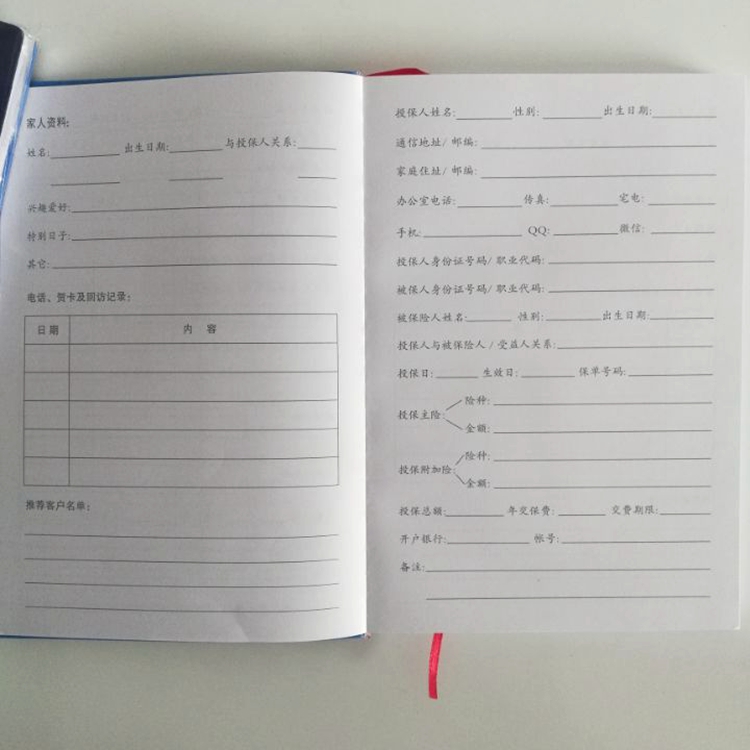 家人资料:
姓名: 出生日期: 与投保人关系:
兴趣爱好:
特别日子:
其它:
电话、贺卡及回访记录:
日期 内容
推荐客户名单:
投保人姓名: 性别: 出生日期:
通信地址/邮编:
家庭住址/邮编:
办公室电话: 传真: 宅电:
手机: QQ: 微信:
投保人身份证号码/职业代码:
被保人身份证号码/职业代码:
被保险人姓名: 性别: 出生日期:
投保人与被保险人/受益人关系:
投保日: 生效日: 保单号码:
投保主险:
险种:
金额:
投保附加险:
险种:
金额:
投保总额: 年交保费: 交费期限:
开户银行: 帐号:
备注: